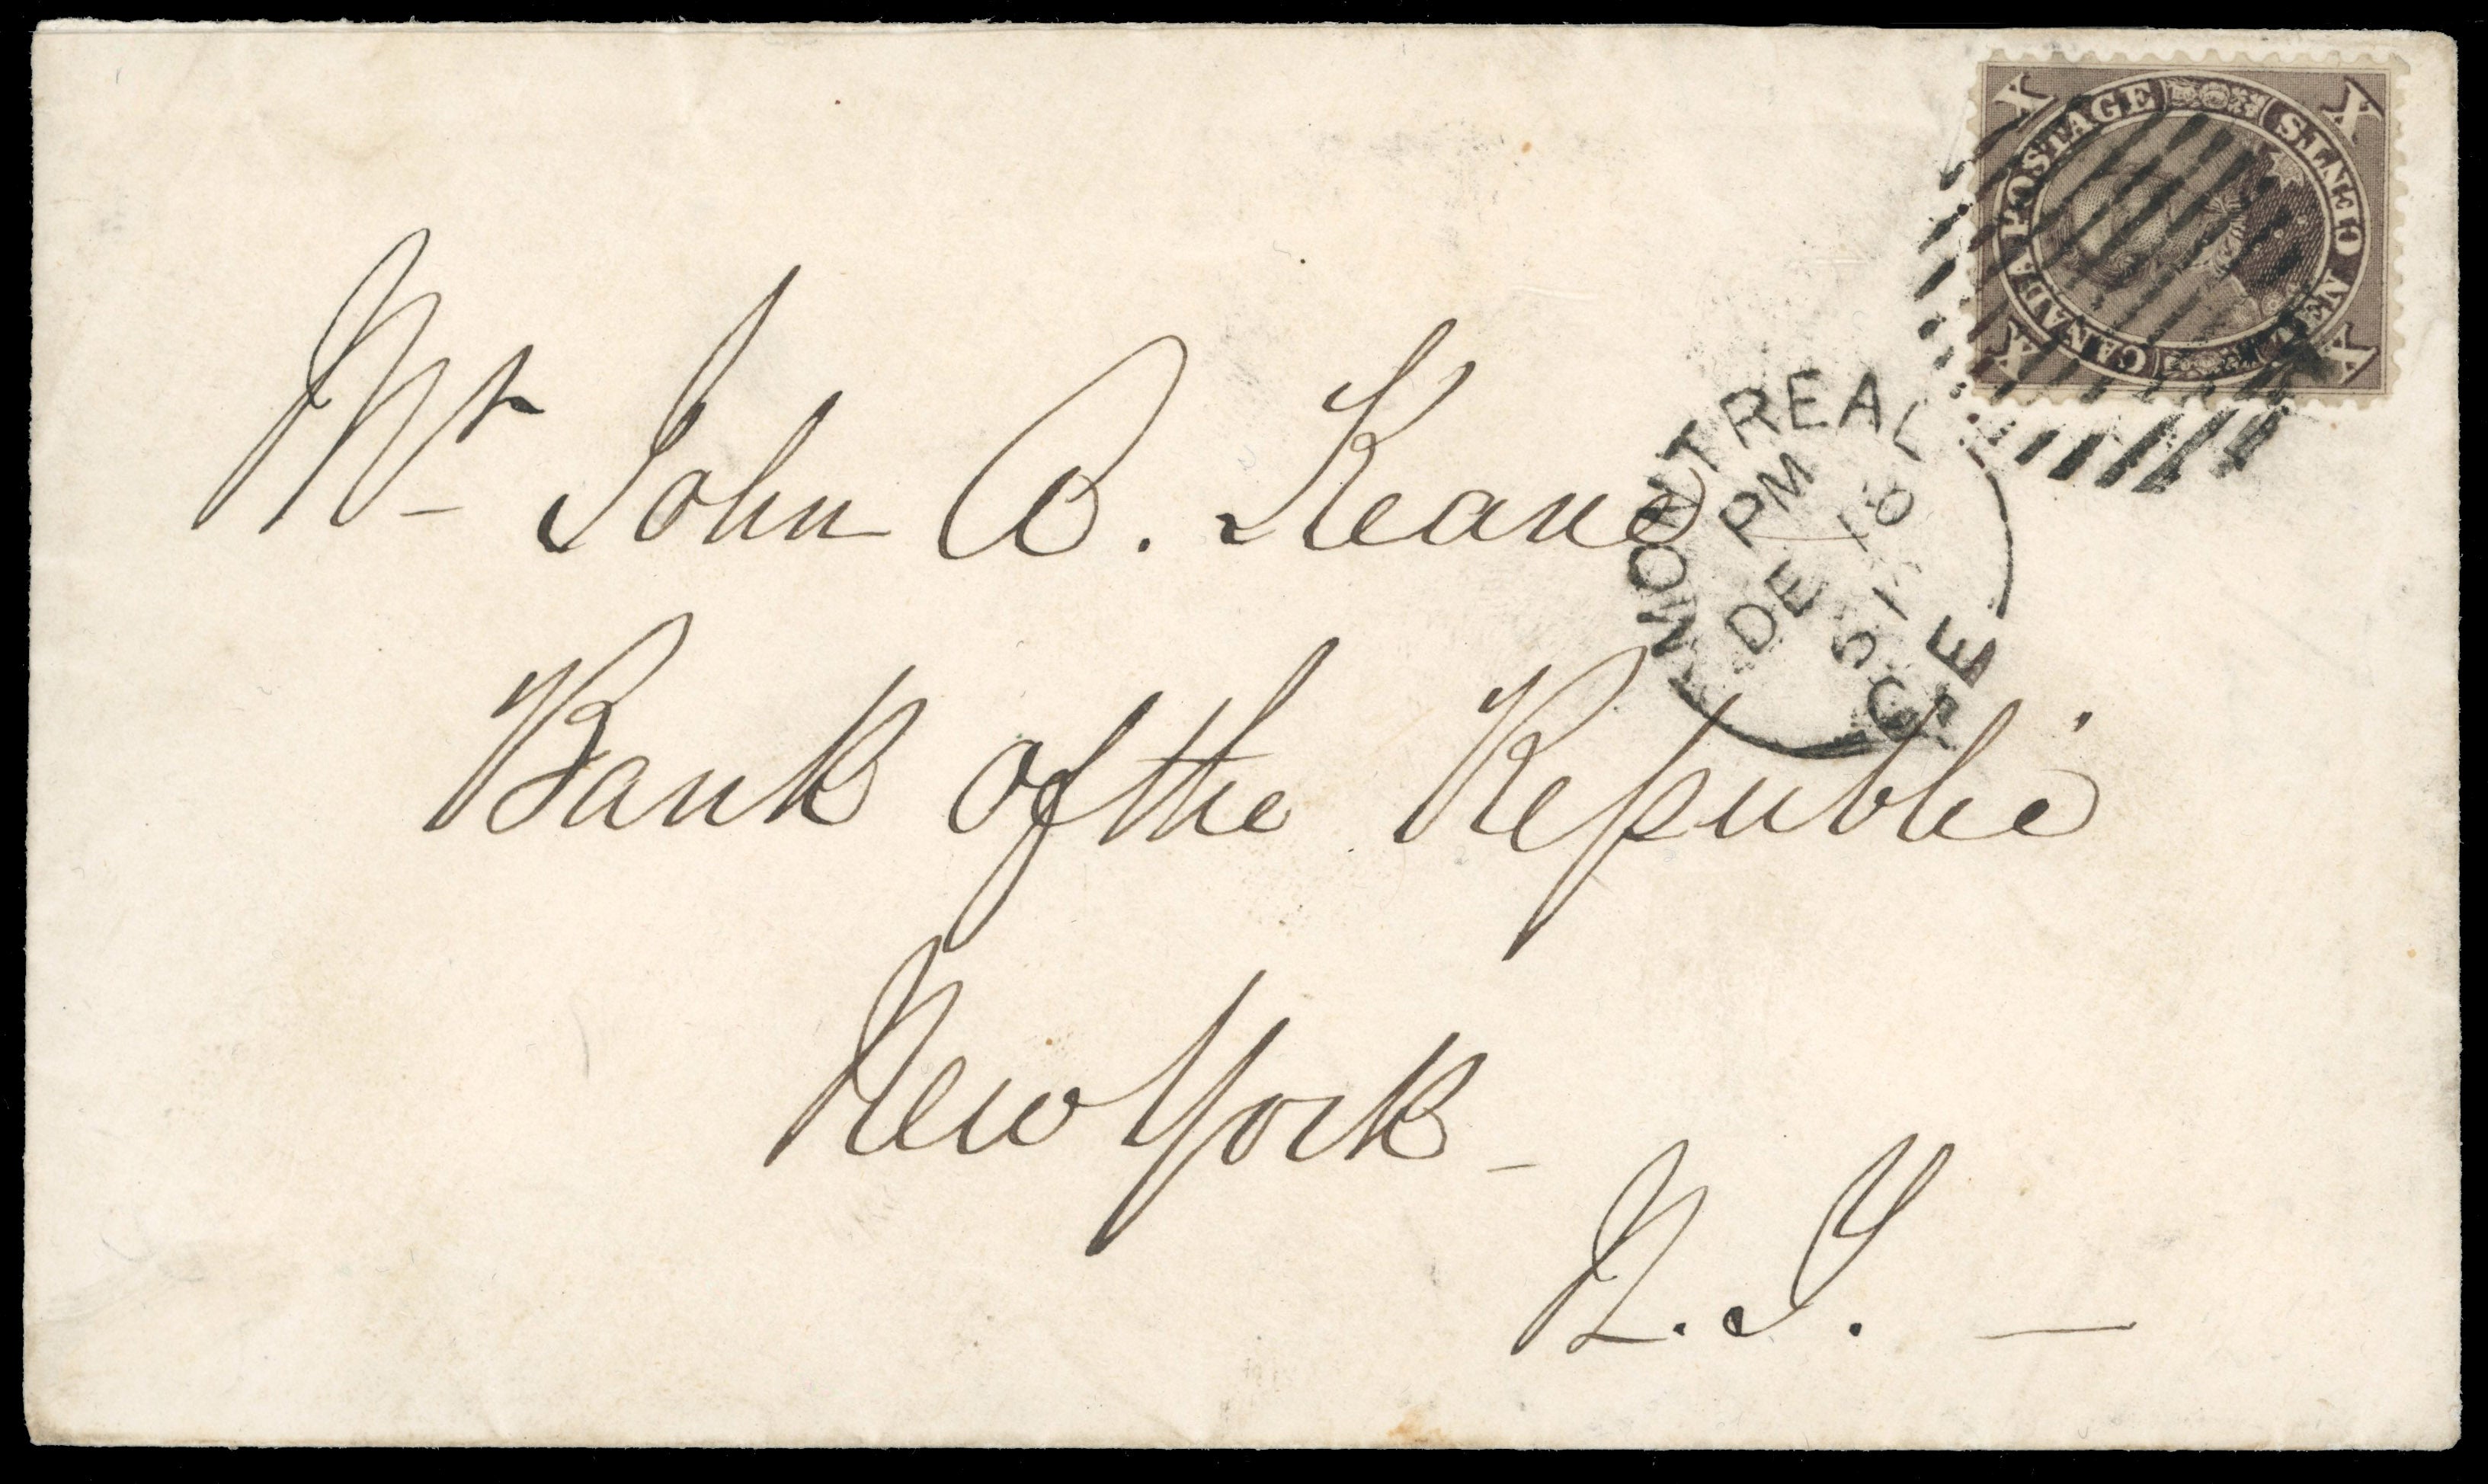 X X X X
CANADA POSTAGE
TEN CENTS
MONTREAL
PM
DE 18
CE
Mr John A. Keane
Bank of the Republic
New York
N. Y.